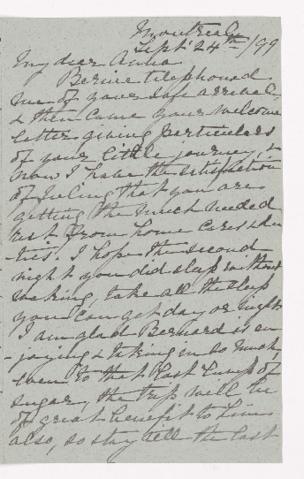 Montreal
Sept 24th /99
My dear Anna
Bernie telephoned
me of your safe arrival,
& then came your welcome
letter giving particulars
of your little journey, &
now I have the satisfaction
of feeling that you are
getting the much needed
rest from home cares & du
ties. I hope the second
night you did sleep without
waking, take all the sleep
you can get day or night
I am glad Bernard is en
-joying & taking in so much,
even to the last lump of
sugar, the trip will be
of great benefit to him
also, so stay till the last